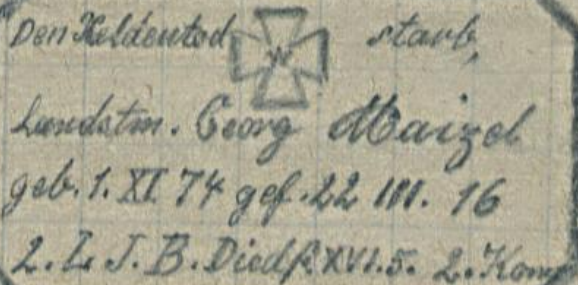 Den Heldentod W starb,
Landstm. Georg Maizel
geb. 1. XI 74 gef. 22 III. 16
2. L. I. B. XVI.5. 2. Komp